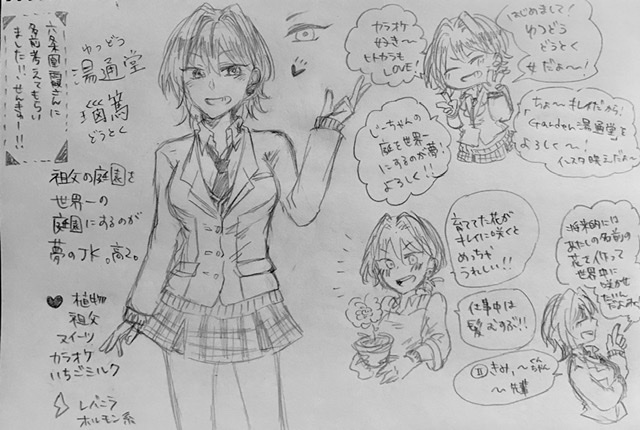 六条凰霞さんに
名前考えてもらい
ました!!せんきゅー!!
ゆつどう
湯通堂
瑙篤
どうとく
祖父の庭園を
世界一の
庭園にするのが
夢のJK。高2。
植物
祖父
スイーツ
カラオケ
いちごミルク
レバニラ
ホルモン系
カラオケ
好き〜
ヒトカラも
LOVE!
じーちゃんの
庭を世界一
にするのが夢!
よろしく!!
はじめまして!
ゆつどう
どうとく
だよ〜!
ちょ〜キレイだから!
「Garden湯通堂」を
よろしく〜!
インスタ映えだよ〜
育ててた花が
キレイに咲くと
めっちゃ
うれしい!!
仕事中は
髪むすぶ!!
Ⅱ きみ,〜くん
ちゃん
〜先輩
将来的には
あたしの名前の
花を作って
世界中に
咲かせ
たいん
だよね